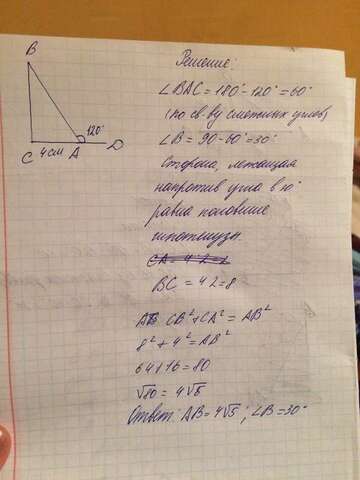 Решение:
B
120°
C 4см A D
∠BAC = 180° - 120° = 60°
(по св-ву смежных углов)
∠B = 90 - 60° = 30°
Сторона, лежащая
напротив угла в 
равна половине
гипотенузы.
CA = 4 2 = 2
BC = 4 2 = 8
CB² + CA² = AB²
8² + 4² = AB²
64 + 16 = 80
√80 = 4√5
Ответ: AB = 4√5; ∠B = 30°